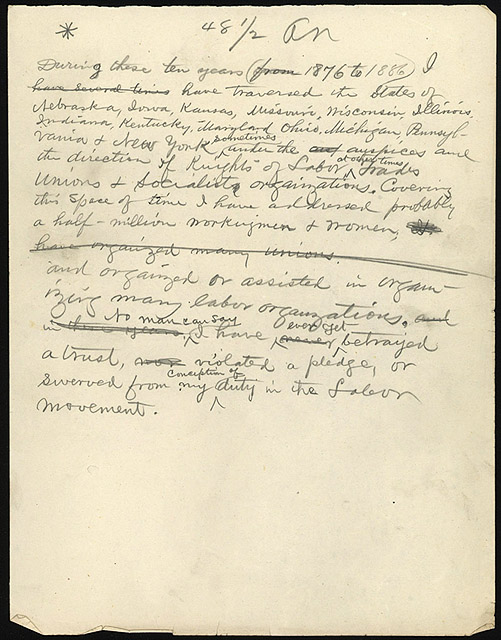 * 48 1/2 AN
During these ten years (from 1876 to 1886) I
have several times have traversed the States of
Nebraska, Iowa, Kansas, Missouri, Wisconsin, Illinois,
Indiana, Kentucky, Maryland Ohio, Michigan, Pennsyl-
vania & New York sometimes under the auspices and
the direction of Knights of Labor, at other times, Trades
Unions & Socialistic organizations. Covering
this space of time I have addressed probably
a half-million workingmen & women,
have organized many unions.
and organized or assisted in organ-
izing many labor organizations. and
in these years, No man can say I have never ever yet betrayed
a trust, violated a pledge, or
swerved from my conception of duty in the Labor
movement.